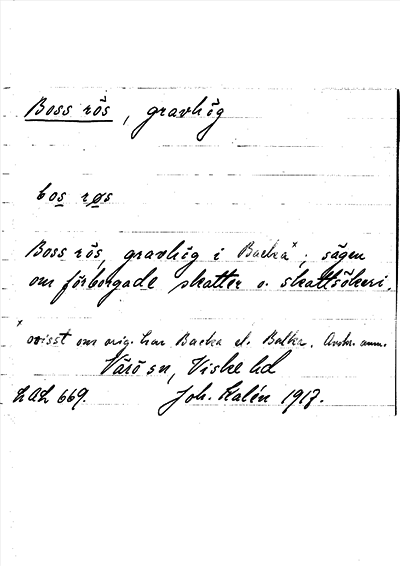 Boss rös, gravhög
bos røs
Boss rös, gravhög i Backa x, sägen
om förborgade skatter o. skattsökeri.
x ovisst om orig. har Backa el. Balka. Avskr. anm.
Värö sn, Viske hd
LAL 669. Joh. Kalén 1917.